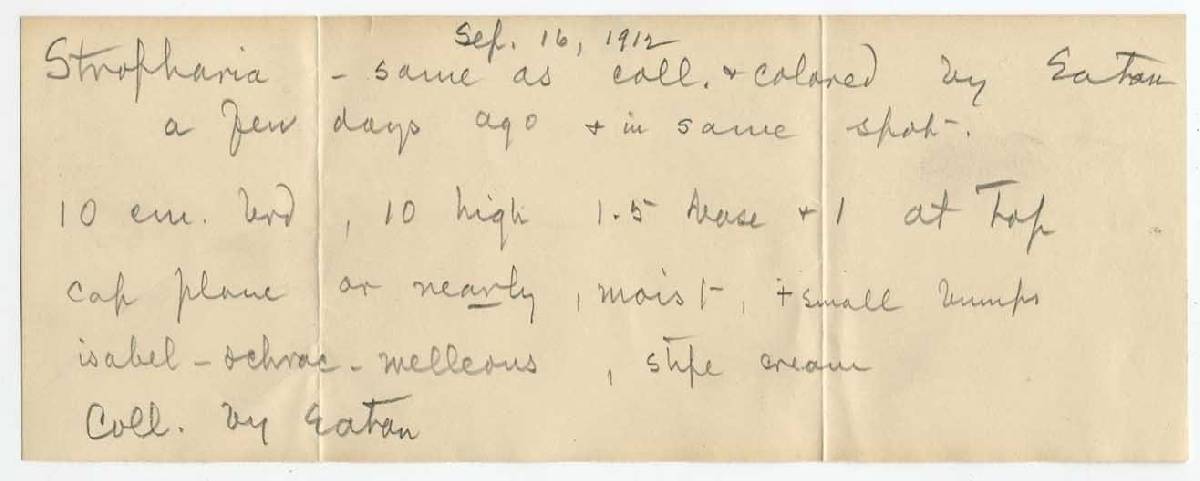 Sep. 16, 1912
Stropharia - same as coll. + colored by Eaton
a few days ago + in same spot.
10 cm. brd, 10 high 1.5 base + 1 at top
cap plane or nearly, moist, + small bumps
isabel - ochrac - melleous, stipe cream
Coll. by Eaton